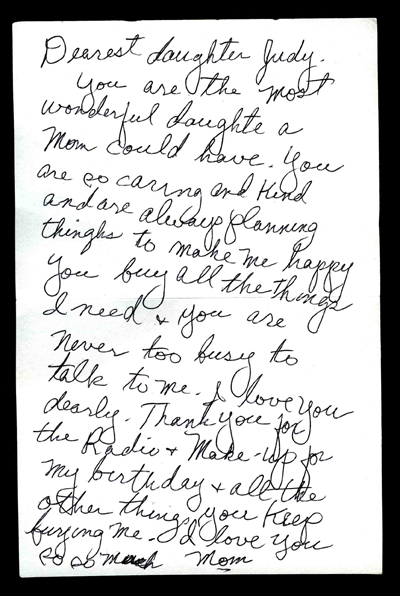 Dearest daughter Judy.
You are the most
wonderful daughte a
Mom could have. You
are so caring and kind
and are always planning
thinghs to make me happy
You buy all the things
I need & you are
never too busy to
talk to me. I love you
dearly. Thank you for
the Radio & Make-up for
my birthday & all the
other things you keep
buying me. I love you
so so much Mom